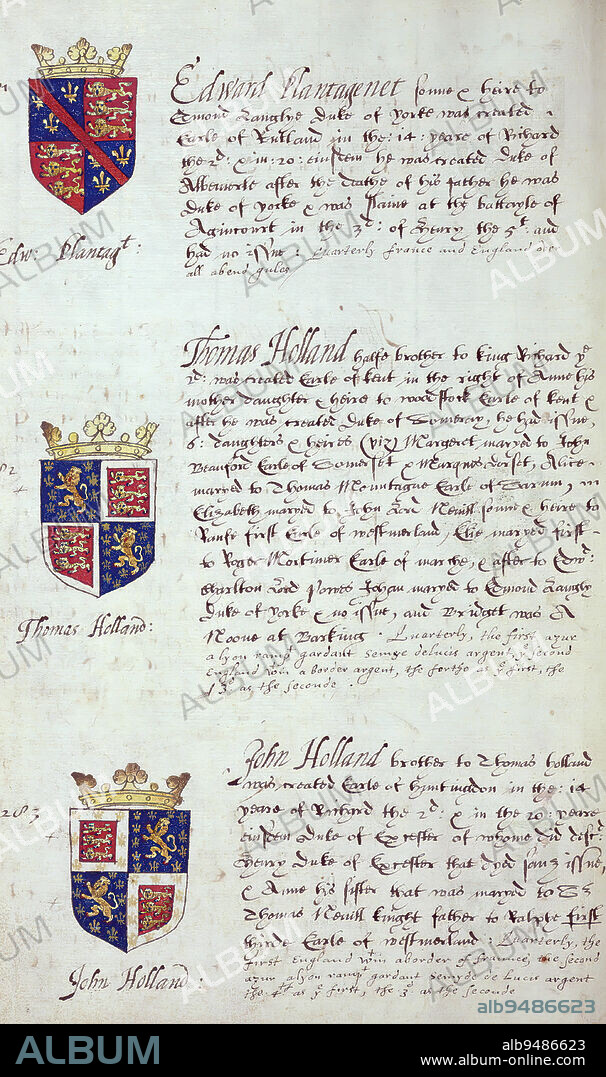 Edward Plantagenet sonne & heire to
Edmond Langlye Duke of Yorke was created
Earle of Rutland in the: 14: yeare of Richard
the 2d: & in: 20: eiusdem he was created Duke of
Albemerle after the deathe of his father he was
Duke of Yorke & was slaine at the battayle of
Agincourt in the 3d: of Henry the 5t: and
had no issue: Quarterly france and England over
all a bend gules
Edw: Plantagt:
Thomas Holland halfe brother to King Richard ye
2d: was created Earle of Kent in the right of Anne his
mother daughter & heire to woodstock Earle of Kent &
after he was created Duke of Surrey, he had issue,
6: daughters & heires (viz) Margeret maryed to John
Beauford Earle of Somerset & Marques dorset, Alice
maryed to Thomas Mountague Earle of Sarum,
Elizabeth maryed to John Lord Nevill sonne & heire to
Raufe first Earle of westmerland, Elie maryed first
to Roger Mortimer Earle of marche, & after to Edw:
charlton Lord Powes Johan maryed to Edmond Langly
Duke of yorke & no issue, and Bridget was A
Noone at Barking. Quarterly, the first azur
a lyon rampt gardant semye delucis argent, second
England win a border argent, the forthe as ye first, the
3d as the seconde.
Thomas Holland:
John Holland brother to Thomas Holland
was created Earle of Huntingdon in the: 14
yeare of Richard the 2d. & in the 20: yeare
eiusdem Duke of Excester of whome did disc:
Henry Duke of Excester that dyed sanz issue,
& Anne his sister that was maryed to Sr
Thomas Nevill knight father to Ralphe first
Earle of westmerland: Quarterly, the
first England win a border of fraunce, the second
azur a lyon rampt gardant semye de Lucis argent
the 4t as ye first, the 3d. as the seconde
283
John Holland:
ALBUM
alb9486623
ALBUM
alb9486623
www.album-online.com